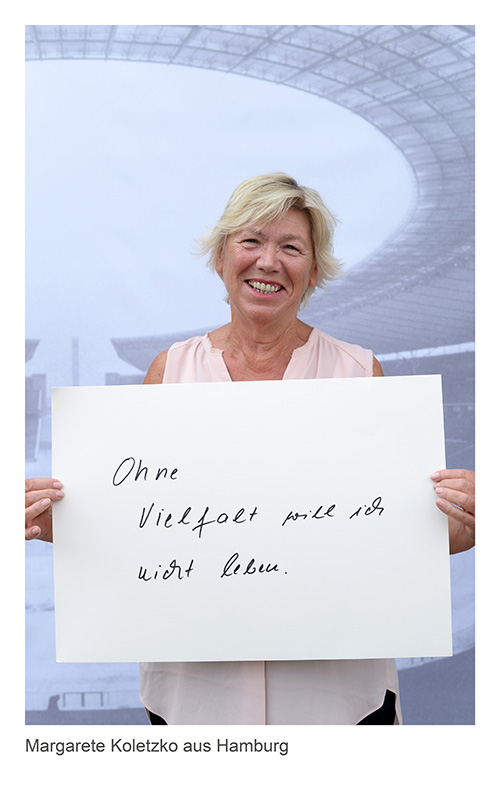 Ohne
Vielfalt will ich
nicht leben.
Margarete Koletzko aus Hamburg